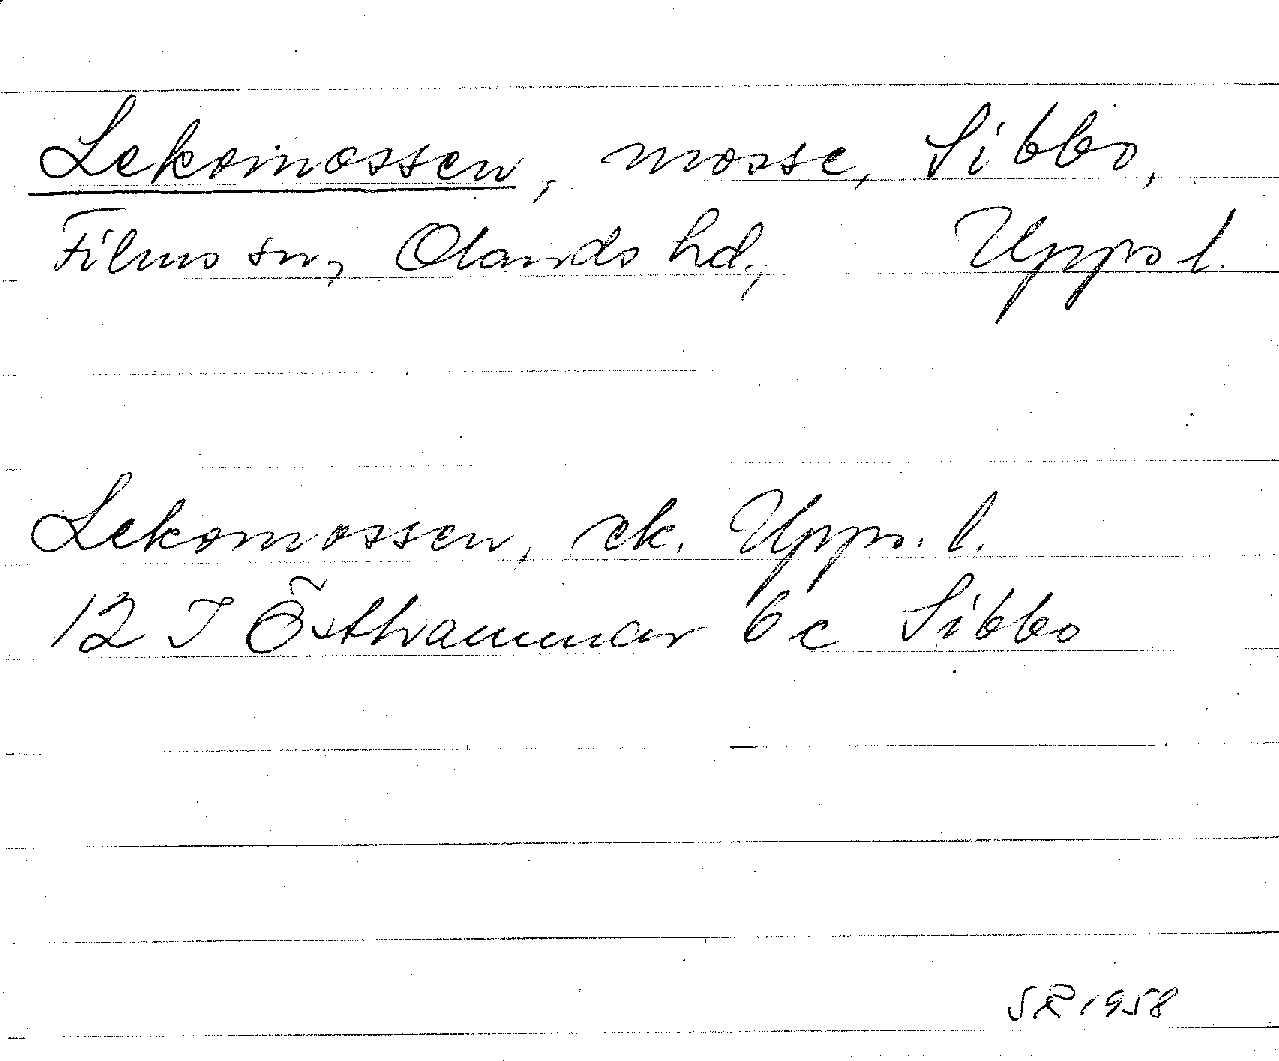 Lekomossen, mosse, Sibbo,
Films sn, Olands hd., Uppl.
Lekomossen, ek. Upps. l.
12 I Östhammar 6 c Sibbo
SR 1958